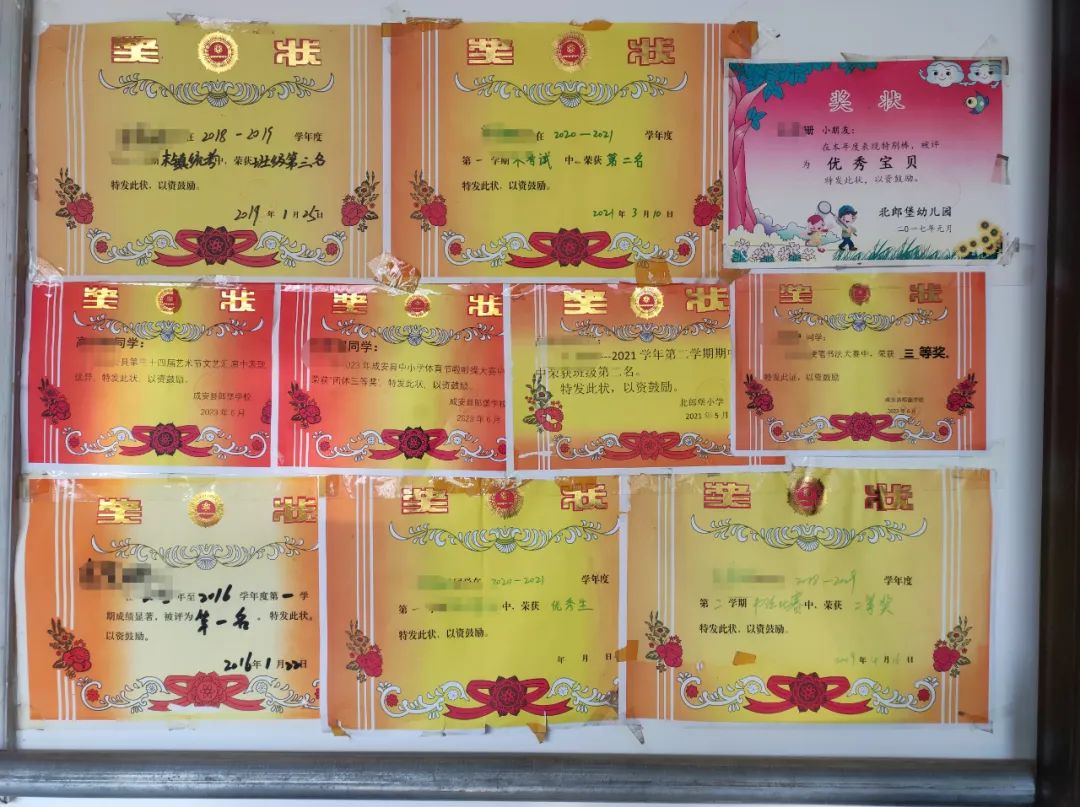 奖 状
在 2018-2019 学年度
镇统考中，荣获班级第三名
特发此状，以资鼓励。
2019年1月25日
奖 状
在 2020-2021 学年度
第一学期 考试 中，荣获 第二名
特发此状，以资鼓励。
2021年3月10日
奖 状
册 小朋友：
在本年度表现特别棒，被评
为 优秀宝贝
特发此状，以资鼓励。
北郎堡幼儿园
二〇一七年元月
奖 状
高 同学：
县第三十四届艺术节文艺汇演中表现
优异，特发此状，以资鼓励。
成安县郎堡学校
2023年6月
奖 状
同学：
2023年成安县中小学体育节啦啦操大赛中
荣获"团体三等奖"，特发此状，以资鼓励。
成安县郎堡学校
2023年6月
奖 状
-2021学年第二学期期中
中荣获班级第二名。
特发此状，以资鼓励。
北郎堡小学
2021年5月
奖 状
同学：
硬笔书法大赛中，荣获 三等奖。
特发此证，以资鼓励
成安县郎堡学校
2023年6月
奖 状
年至2016学年度第一学
期成绩显著，被评为 第一名。特发此状。
以资鼓励。
2016年1月22日
奖 状
2020-2021 学年度
第一学 中，荣获 优秀生
特发此状，以资鼓励。
年 月 日
奖 状
2018-2019 学年度
第二学期 比赛中，荣获 二等奖
特发此状，以资鼓励。
2019年4月16日